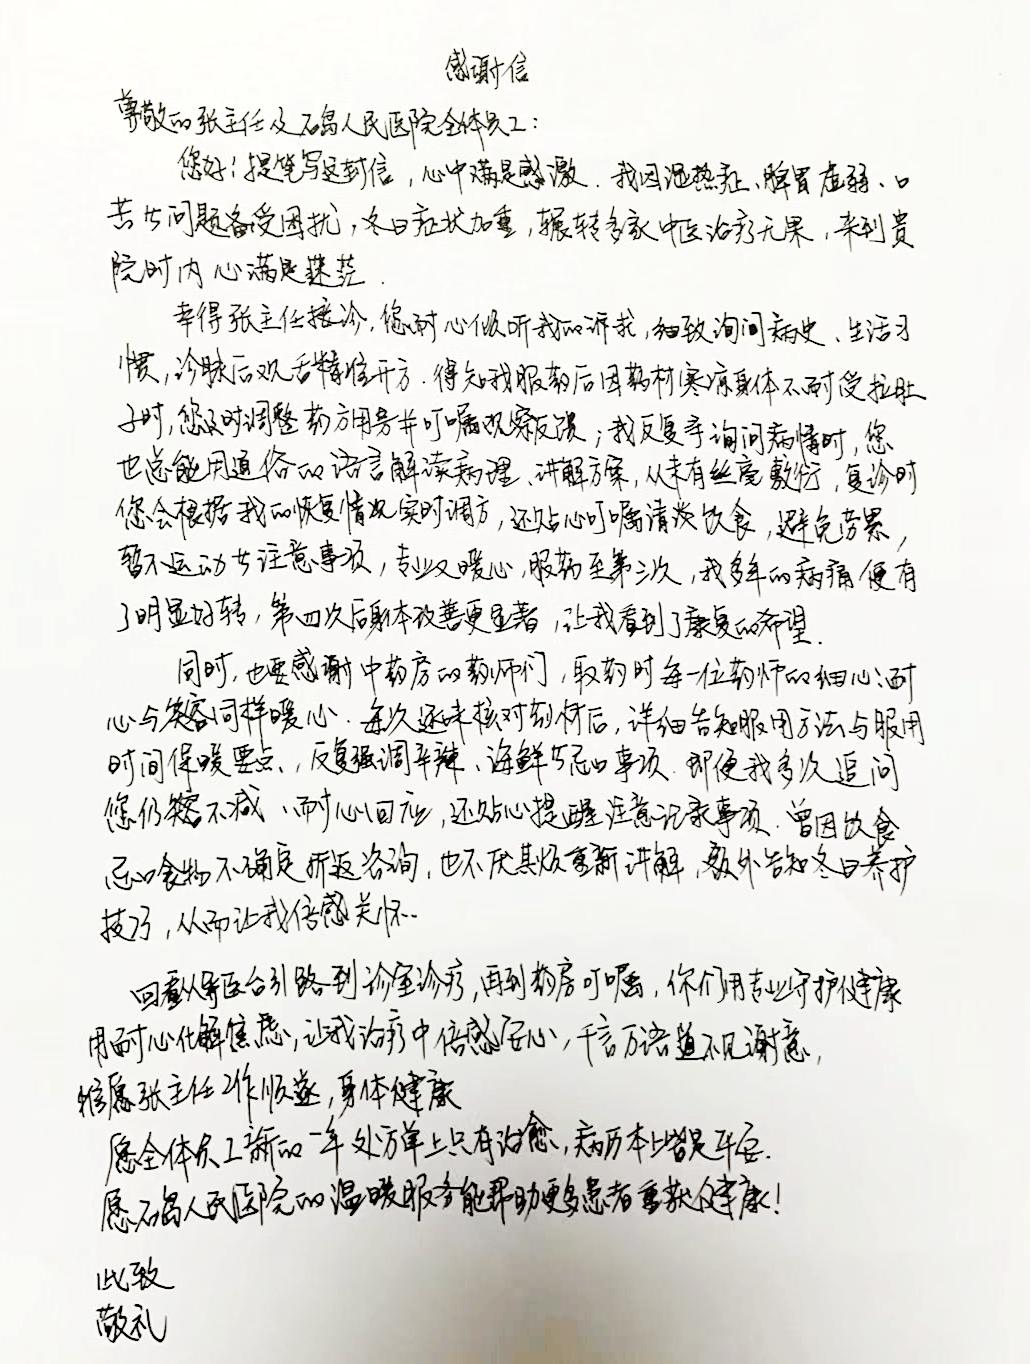 感谢信
尊敬的张主任及石岛人民医院全体员工:
您好!提笔写这封信,心中满是感激.我因湿热症、脾胃虚弱、口
苦等问题备受困扰,冬日症状加重,辗转多家中医治疗无果,来到贵
院时内心满是迷茫.
幸得张主任接诊,您耐心倾听我的诉求,细致询问病史、生活习
惯,诊脉后观舌精准开方.得知我服药后因药材寒凉身体不耐受拉肚
子时,您及时调整药方用劳并叮嘱观察反馈;我反复手询问病情时,您
也总能用通俗的语言解读病理、讲解方案,从未有丝毫敷衍,复诊时
您会根据我的恢复情况实时调方,还贴心叮嘱清淡饮食,避免劳累,
暂不运动等注意事项,专业又暖心,服药至第三次,我多年的病痛便有
了明显好转,第四次后身体改善更显著,让我看到了康复的希望.
同时,也要感谢中药房的药师们,取药时每一位药师的细心、耐
心与笑容同样暖心.每次逐味核对药材后,详细告知服用方法与服用
时间保暖要点、,反复强调辛辣、海鲜等忌口事项.即便我多次追问
您仍笑容不减、耐心回应,还贴心提醒注意记录事项.曾因饮食
忌口食物不确定折返咨询,也不厌其烦重新讲解,额外告知冬日养护
技巧,从而让我倍感关怀..
回看从导医台引路到诊室诊疗,再到药房叮嘱,你们用专业守护健康
用耐心化解焦虑,让我治疗中倍感安心,千言万语道不尽谢意,
惟愿张主任工作顺遂,身体健康
愿全体员工新的一年处方单上只有治愈,病历本上皆是平安.
愿石岛人民医院的温暖服务能帮助更多患者重获健康!
此致
敬礼